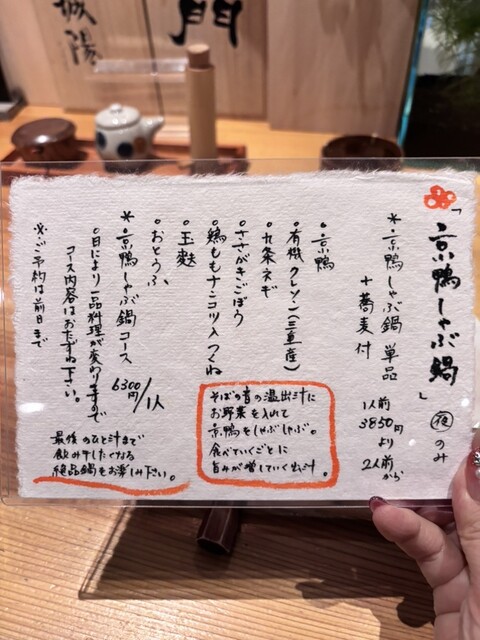 「京鴨しゃぶ鍋」夜のみ
＊京鴨しゃぶ鍋 単品
＋蕎麦付
1人前
3850円
より
2人前
から
•京鴨
•有機クレソン(三重産)
•九条ネギ
•ささがきごぼう
•鶏ももナンコツ入つくね
•玉麩
•おとうふ、
＊京鴨しゃぶ鍋コース
6300円/1人
•日により一品料理が変わりますので
コース内容はおたずね下さい。
※ご予約は前日まで
そばの音の温出汁に
お野菜を入れて
京鴨をしゃぶしゃぶ。
食べていくごとに
旨みが増していく出汁。
最後のひと汁まで
飲み干したくなる
絶品鍋をお楽しみ下さい。
門
城陽